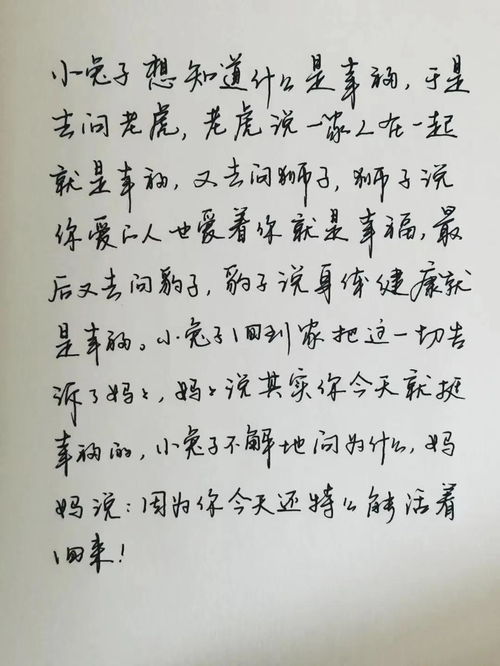 小兔子想知道什么是幸福，于是
去问老虎，老虎说一家人在一起
就是幸福，又去问狮子，狮子说
你爱的人也爱着你就是幸福，最
后又去问豹子，豹子说身体健康就
是幸福。小兔子回到家把这一切告
诉了妈々，妈々说其实你今天就挺
幸福的，小兔子不解地问为什么，妈
妈说：因为你今天还特么能活着
回来！